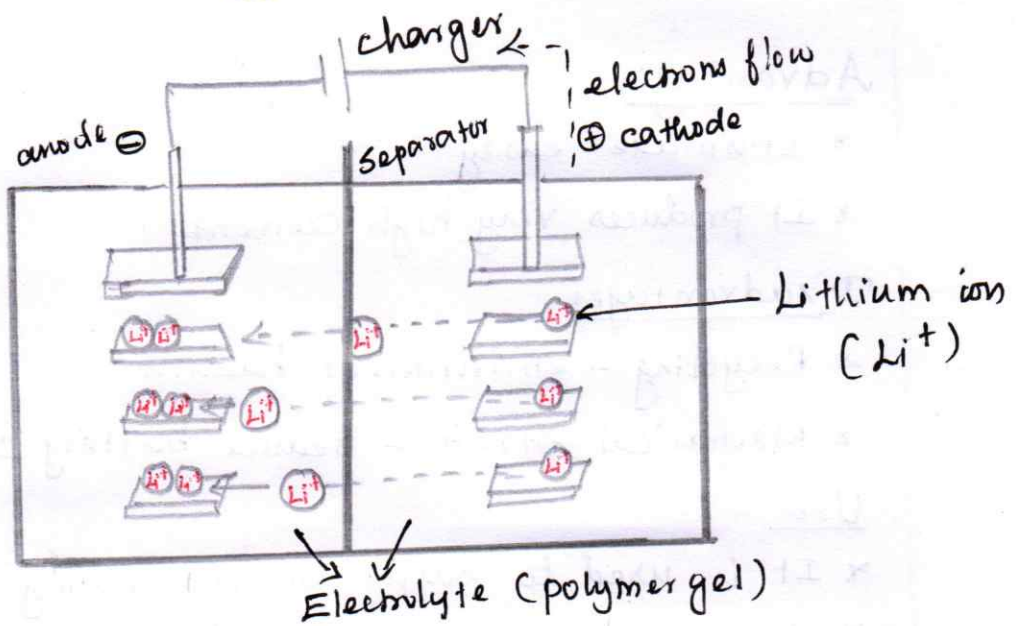 charger
electrons flow
anode ⊖
separator
⊕ cathode
Li+ Li+
Li+
Li+
Lithium ion
(Li+)
Li+ Li+
Li+
Li+
Li+ Li+
Li+
Li+
Electrolyte (polymer gel)